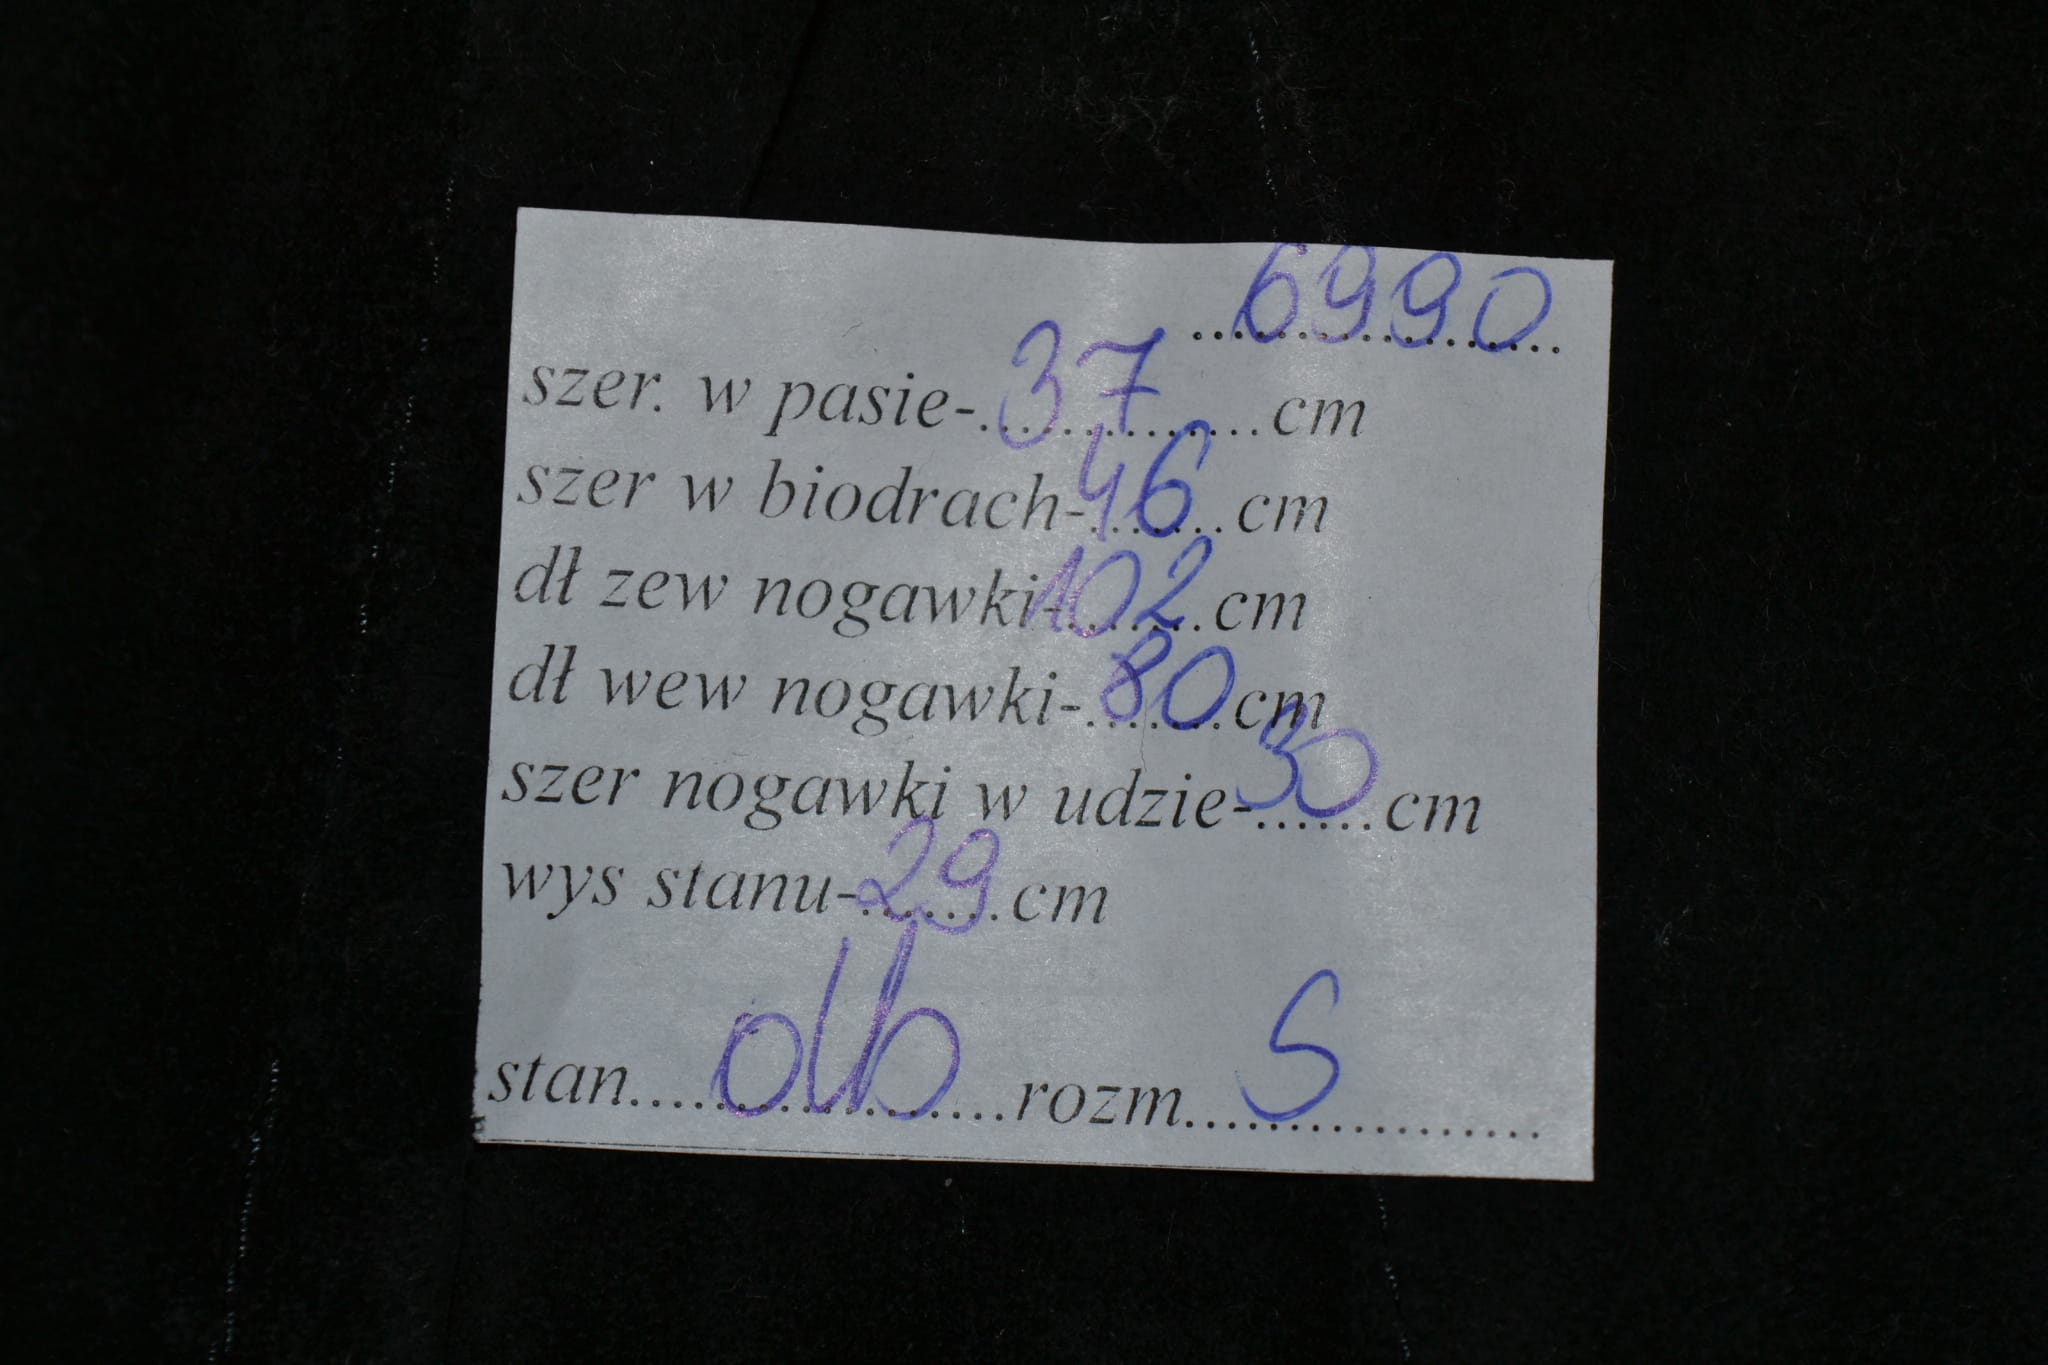 6990
szer. w pasie-37cm
szer w biodrach-46cm
dł zew nogawki-102cm
dł wew nogawki-80cm
szer nogawki w udzie-30cm
wys stanu-29cm
stan....db....rozm....S....